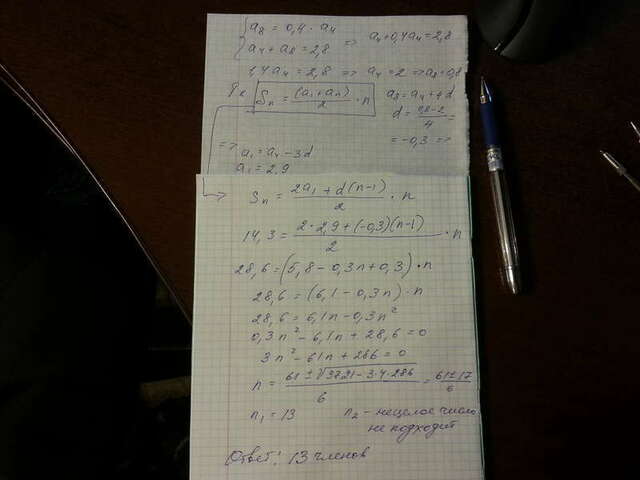 a₈ = 0,4 · a₄
a₄ + a₈ = 2,8 => a₄ + 0,4a₄ = 2,8
1,4a₄ = 2,8 => a₄ = 2 => a₈ = 0,8
Тк Sₙ = (a₁ + aₙ)/2 · n a₈ = a₄ + 4d
d = (0,8 - 2)/4 =
= -0,3 =>
=> a₁ = a₄ - 3d
a₁ = 2,9
Sₙ = (2a₁ + d(n-1))/2 · n
14,3 = (2·2,9 + (-0,3)(n-1))/2 · n
28,6 = (5,8 - 0,3n + 0,3) · n
28,6 = (6,1 - 0,3n) · n
28,6 = 6,1n - 0,3n²
0,3n² - 6,1n + 28,6 = 0
3n² - 61n + 286 = 0
n = (61 ± √3721 - 3·4·286)/6 = (61 ± 17)/6
n₁ = 13 n₂ - нецелое число
не подходит
Ответ: 13 членов